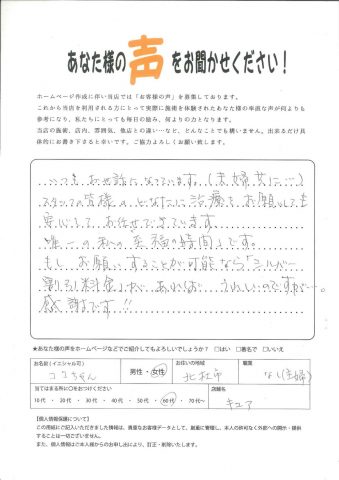 あなた様の声をお聞かせください！
ホームページ作成に伴い当店では「お客様の声」を募集しております。
これから当店を利用される方にとって実際に施術を体験されたあなた様の率直な声が何よりも
参考になり、私たちにとっても毎日の励み、何よりの力となります。
当店の施術、店内、雰囲気、他店との違い…など、どんなことでも構いません。出来るだけ具
体的にお書き下さると幸いです。ご協力よろしくお願い致します。
いつもお世話になっています。(夫婦共に…)
スタッフの皆様のどなたに治療をお願いしても
安心してお任せできています。
唯一の私の「至福の時間」です。
もしお願いすることが可能なら「シルバー
割引料金」が、あれば、うれしいのですが…。
感謝です!!
★あなた様の声をホームページなどでご紹介してもよろしいでしょうか？ □はい □署名で □いいえ
お名前（イニシャル可）
男性・女性
お住いの地域
北杜市
職業
なし(主婦)
当てはまる所に○をおつけください
10代・20代・30代・40代・50代・60代・70代〜
店舗名
キュア
【個人情報保護について】
この用紙にご記入いただきました情報は、貴重なお客様データとして、厳重に管理し、本人の許可なく外部への開示・提供
することは一切ございません。
また、個人情報はご本人様からのお申し出により、訂正・削除いたします。